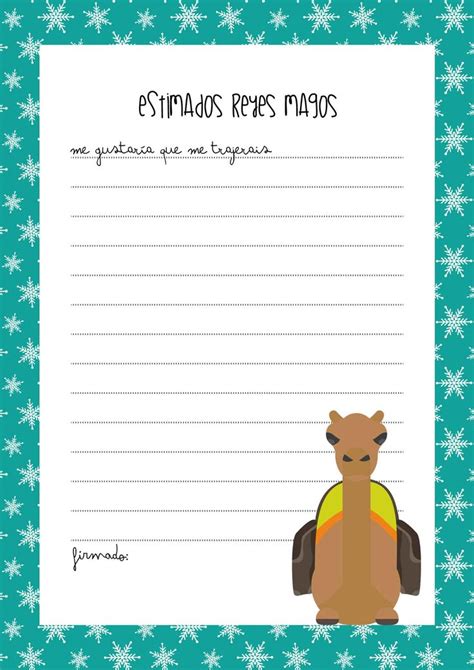 estimados reyes magos
me gustaría que me trajerais
firmado: